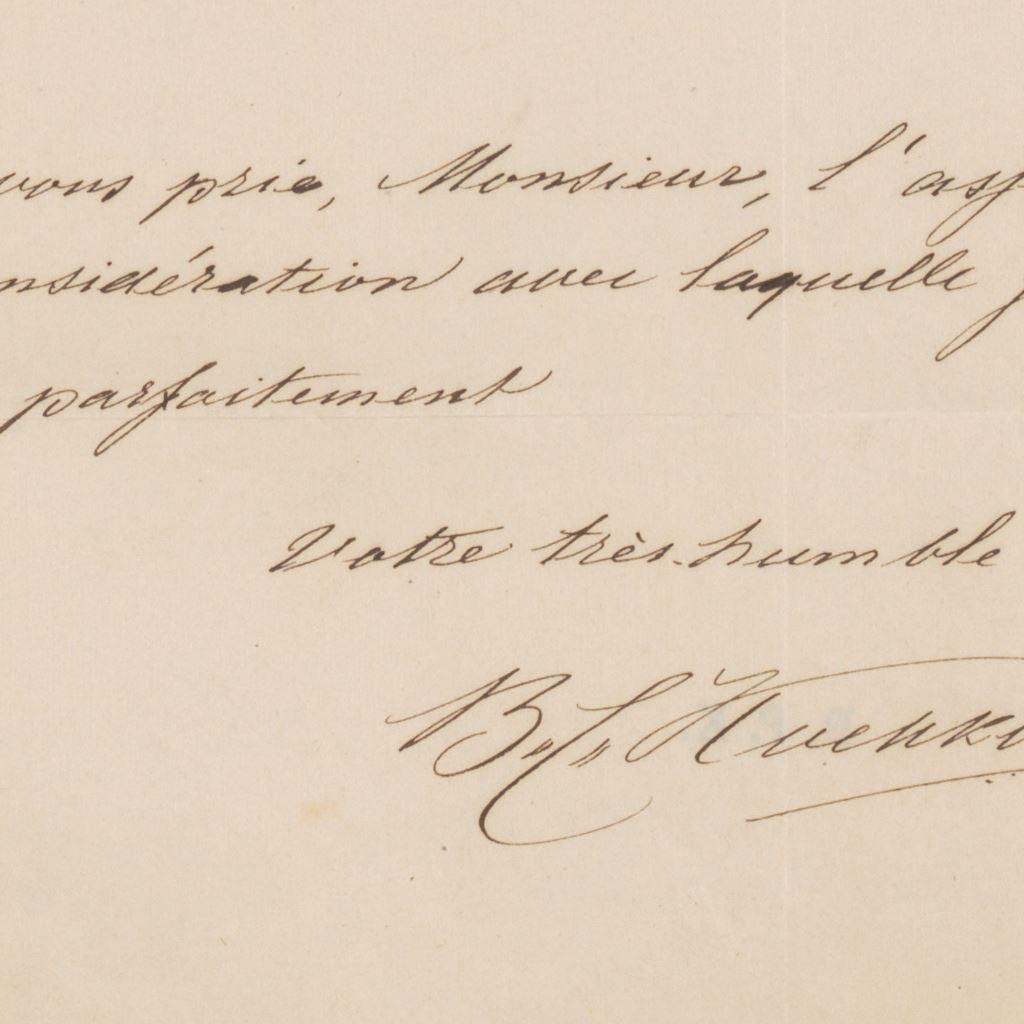 vous prie, Monsieur, l'
nsidération avec laquelle
parfaitement
Votre très-humble
B. L.